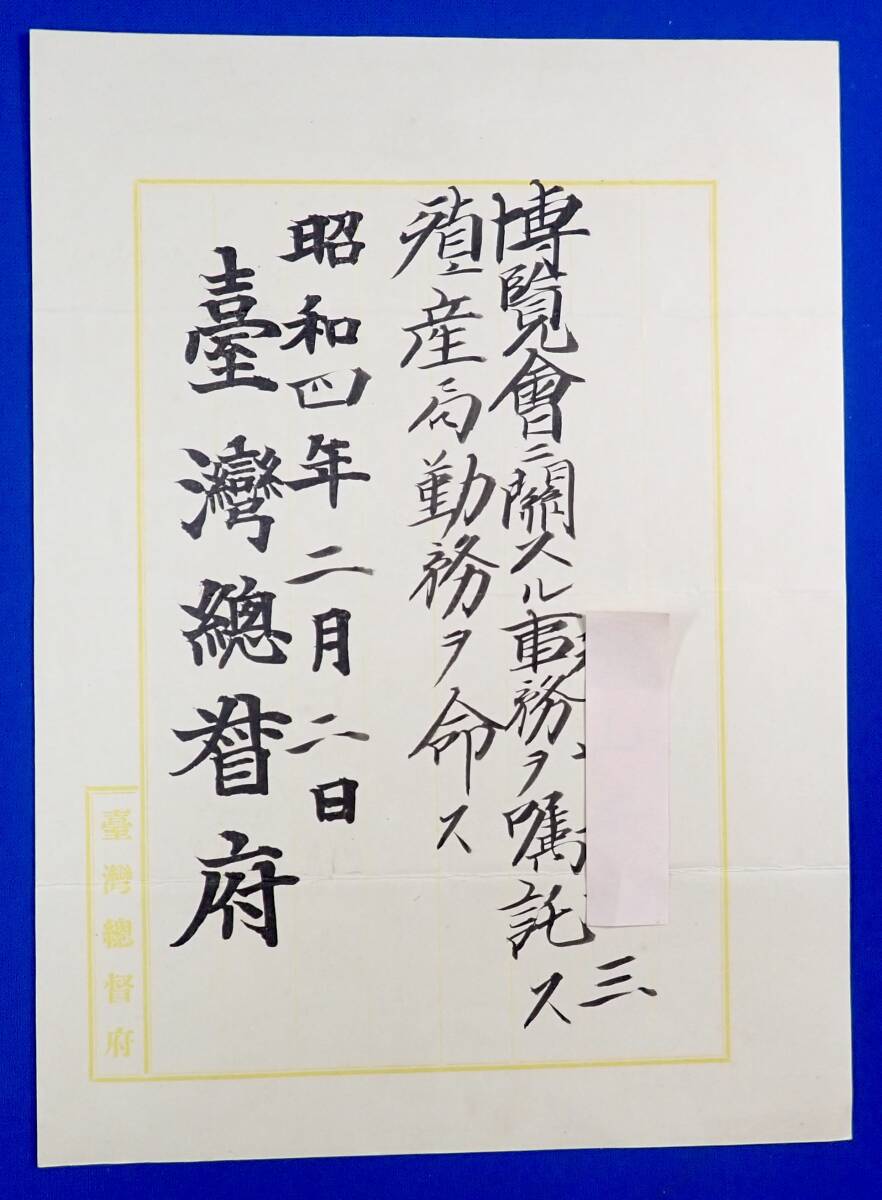 三
博覽會ニ關スル事務ヲ嘱託ス
殖産局勤務ヲ命ス
昭和四年二月二日
臺灣總督府
臺灣總督府